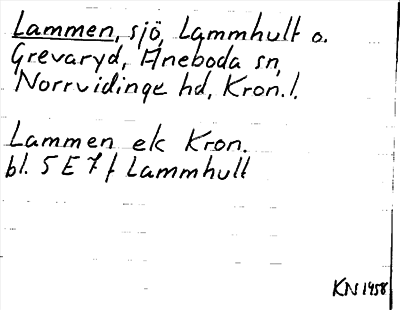 Lammen, sjö, Lammhult o.
Grevaryd, Aneboda sn,
Norrvidinge hd, Kron. l.
Lammen ek Kron.
bl. 5 E 7 f Lammhult
KN 1958